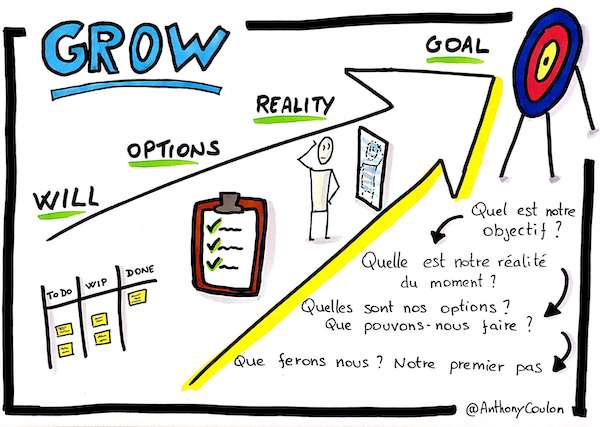 GROW
GOAL
REALITY
OPTIONS
WILL
TO DO
WIP
DONE
Quel est notre
objectif ?
Quelle est notre réalité
du moment ?
Quelles sont nos options ?
Que pouvons-nous faire ?
Que ferons nous ? Notre premier pas
@AnthonyCoulon